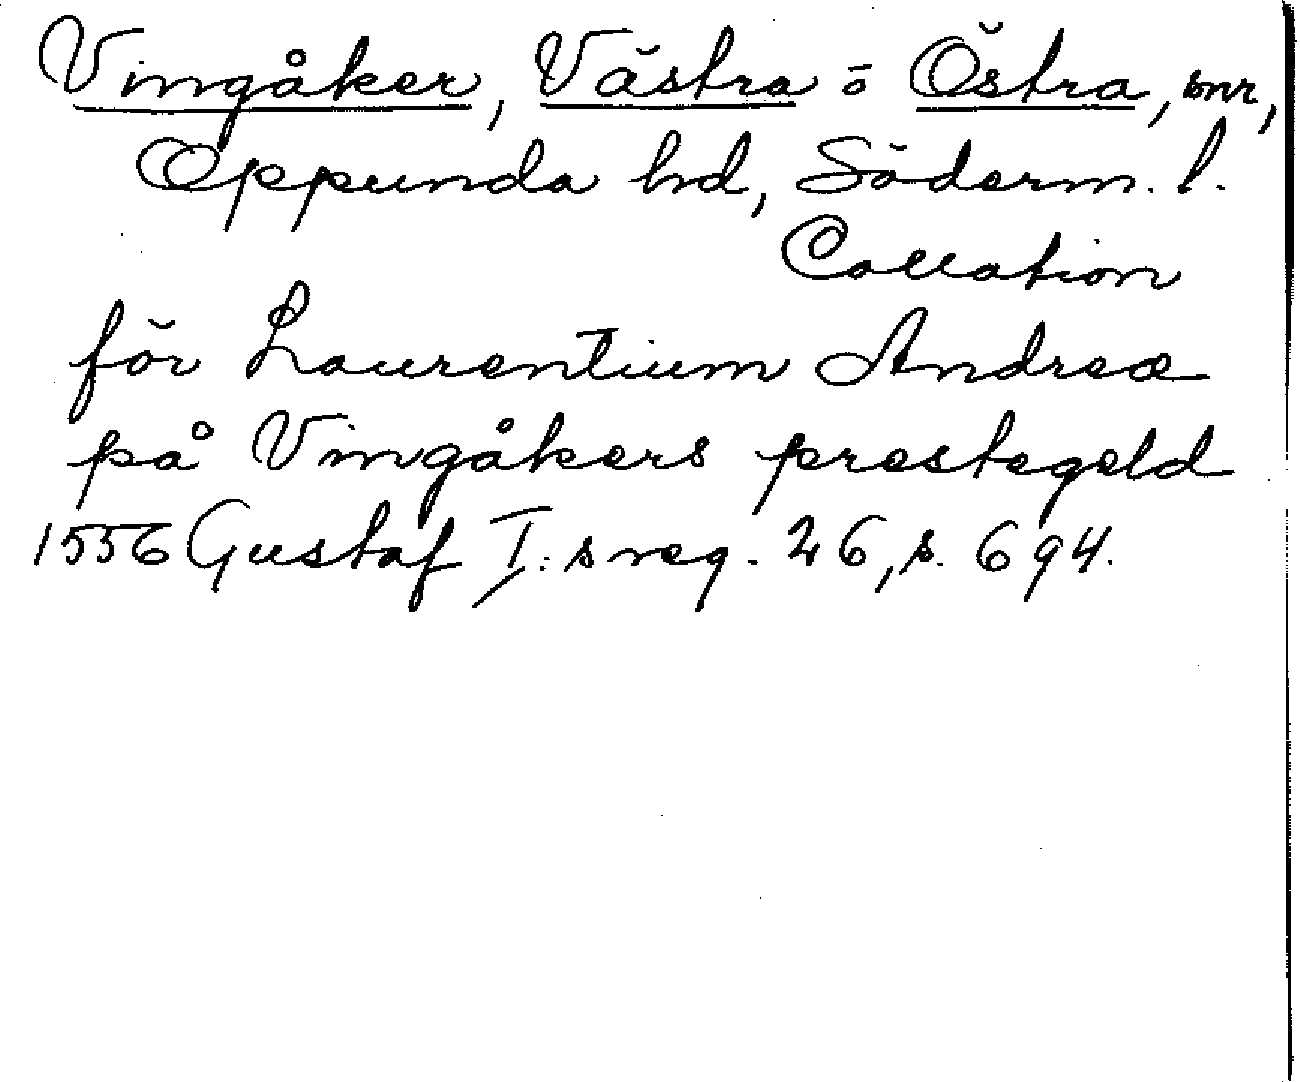 Vingåker, Västra o Östra, snr,
Oppunda hd, Söderm. l.
Collation
för Laurentium Andreæ
på Vingåkers prestegeld
1556 Gustaf I: s reg. 26, s. 694.